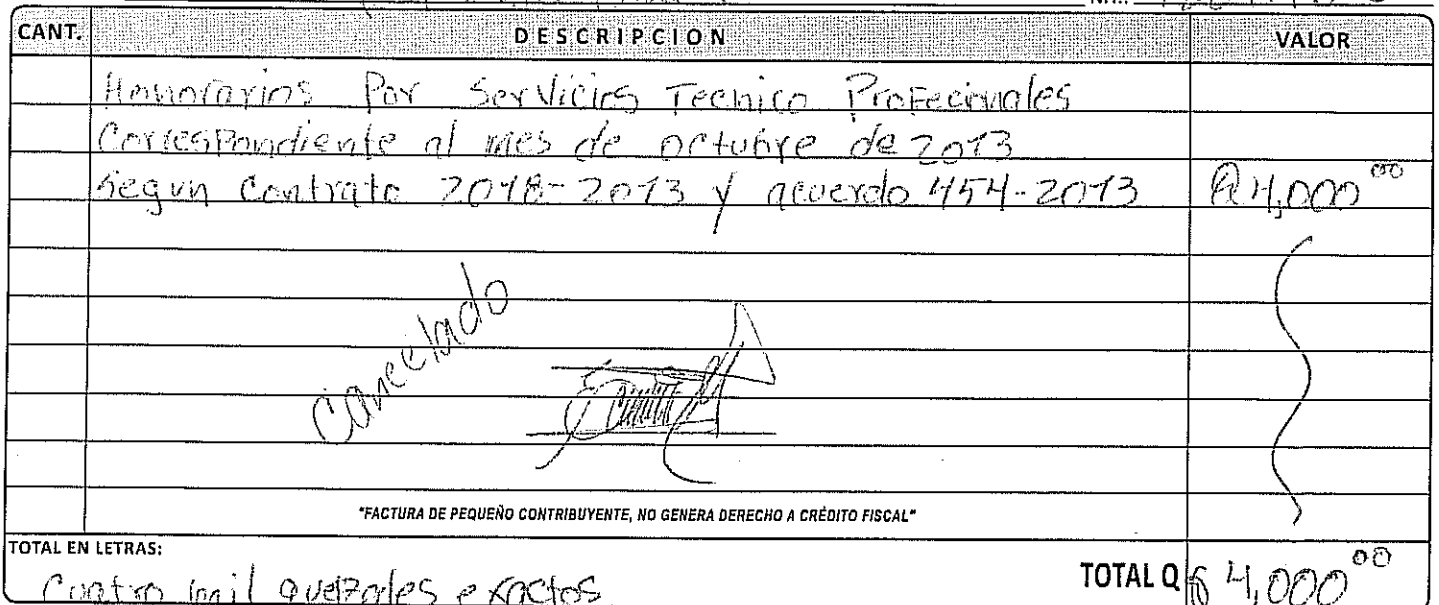 NIT.:
CANT. DESCRIPCION VALOR
Honorarios Por Servicios Tecnico Profecionales
Correspondiente al mes de octubre de 2013
Segun Contrato 2018-2013 y acuerdo 454-2013 Q 4,000 00
Cancelado
"FACTURA DE PEQUEÑO CONTRIBUYENTE, NO GENERA DERECHO A CRÉDITO FISCAL"
TOTAL EN LETRAS:
Cuatro mil quetzales exactos TOTAL Q 4,000 00